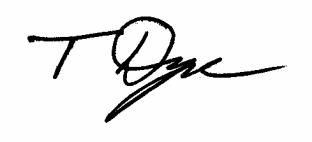 T Dye